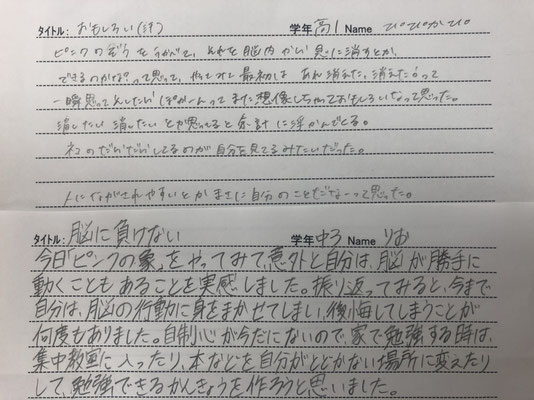 タイトル: おもしろい(汗) 学年 高1 Name ぴぴぴかぴ
ピンクのぞうをうかべて、それを脳内から思に消すとか、
できるのかなって思って、やってみて最初は あれ消えた、消えた!って
一瞬思ってんしたらぽかーんってまた想像しちゃっておもしろいなって思った。
消したい 消したい とか思ってると余計に浮かんでくる。
ネコのだらだらしてるのが自分を見てるみたいだった。
人にながされやすいとか まさに自分のことだなーって思った。
タイトル: 脳に負けない 学年 中3 Name りお
今日「ピンクの象」をやってみて、意外と自分は、脳が勝手に
動くこともあることを実感しました。振り返ってみると、今まで
自分は、脳の行動に身をまかせてしまい、後悔してしまうことが
何度もありました。自制心が今だにないので、家で勉強する時は、
集中教室に入ったり、本などを自分がとどかない場所に変えたり
して、勉強できるかんきょうを作ろうと思いました。